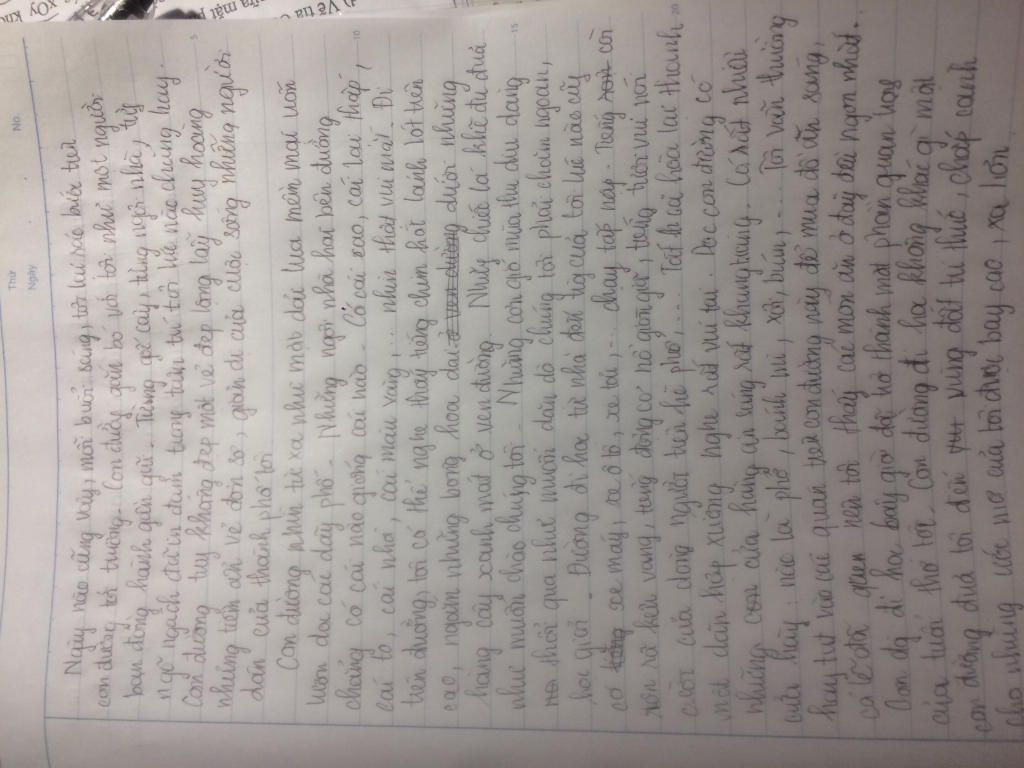 Thứ
Ngày
No.
Ngày nào cũng vậy, mỗi buổi sáng, tôi lại rảo bước trên
con đường tới trường. Con đường gắn bó với tôi như một người
bạn đồng hành gần gũi. Từng gốc cây, từng ngôi nhà, từng
ngõ ngách đã in đậm trong tâm trí tôi từ lúc nào chẳng hay.
Con đường tuy không đẹp một vẻ đẹp lộng lẫy, huy hoàng
nhưng tôn ẩn vẻ đơn sơ, giản dị của cuộc sống những người
dân của thành phố tôi.
Con đường nhìn từ xa như một dải lụa mềm mại uốn
lượn dọc các dãy phố. Những ngôi nhà hai bên đường
chẳng có cái nào giống cái nào. Có cái cao, cái lại thấp,
cái to, cái nhỏ, cái màu vàng,... nhìn thật vui mắt. Đi
trên đường, tôi có thể nghe thấy tiếng chim hót lảnh lót trên
cao, ngắm những bông hoa dại ở ven đường dưới những
hàng cây xanh mát ở ven đường. Những chiếc lá khẽ đu đưa
như muốn chào chúng tôi. Những cơn gió mùa thu dịu dàng
thổi qua như muốn dặn dò chúng tôi phải chăm ngoan,
học giỏi. Đường đi học từ nhà đến lớp của tôi lúc nào cũng
có xe máy, xe ô tô, xe tải,... chạy tấp nập. Tiếng còi
rộn rã kêu vang, tiếng động cơ nổ giòn giã, tiếng cười vui nói
cười của dòng người trên hè phố,... Tất cả hòa lại thành
một dàn hợp xướng nghe rất vui tai. Dọc con đường có
những cửa hàng ăn sáng rất khang trang. Có rất nhiều
cửa hàng, nào là phở, bánh mì, xôi, bún,... Tôi vẫn thường
hay tạt vào cái quán trên con đường này để mua đồ ăn sáng,
có lẽ đối với tôi thấy các món ăn ở đây đều ngon nhất.
Con đường đi học bây giờ đã trở thành một phần quan trọng
của tuổi thơ tôi. Con đường đi học không khác gì một
con đường đưa tôi đến vùng đất tri thức, chắp cánh
cho những ước mơ của tôi được bay cao, xa lớn